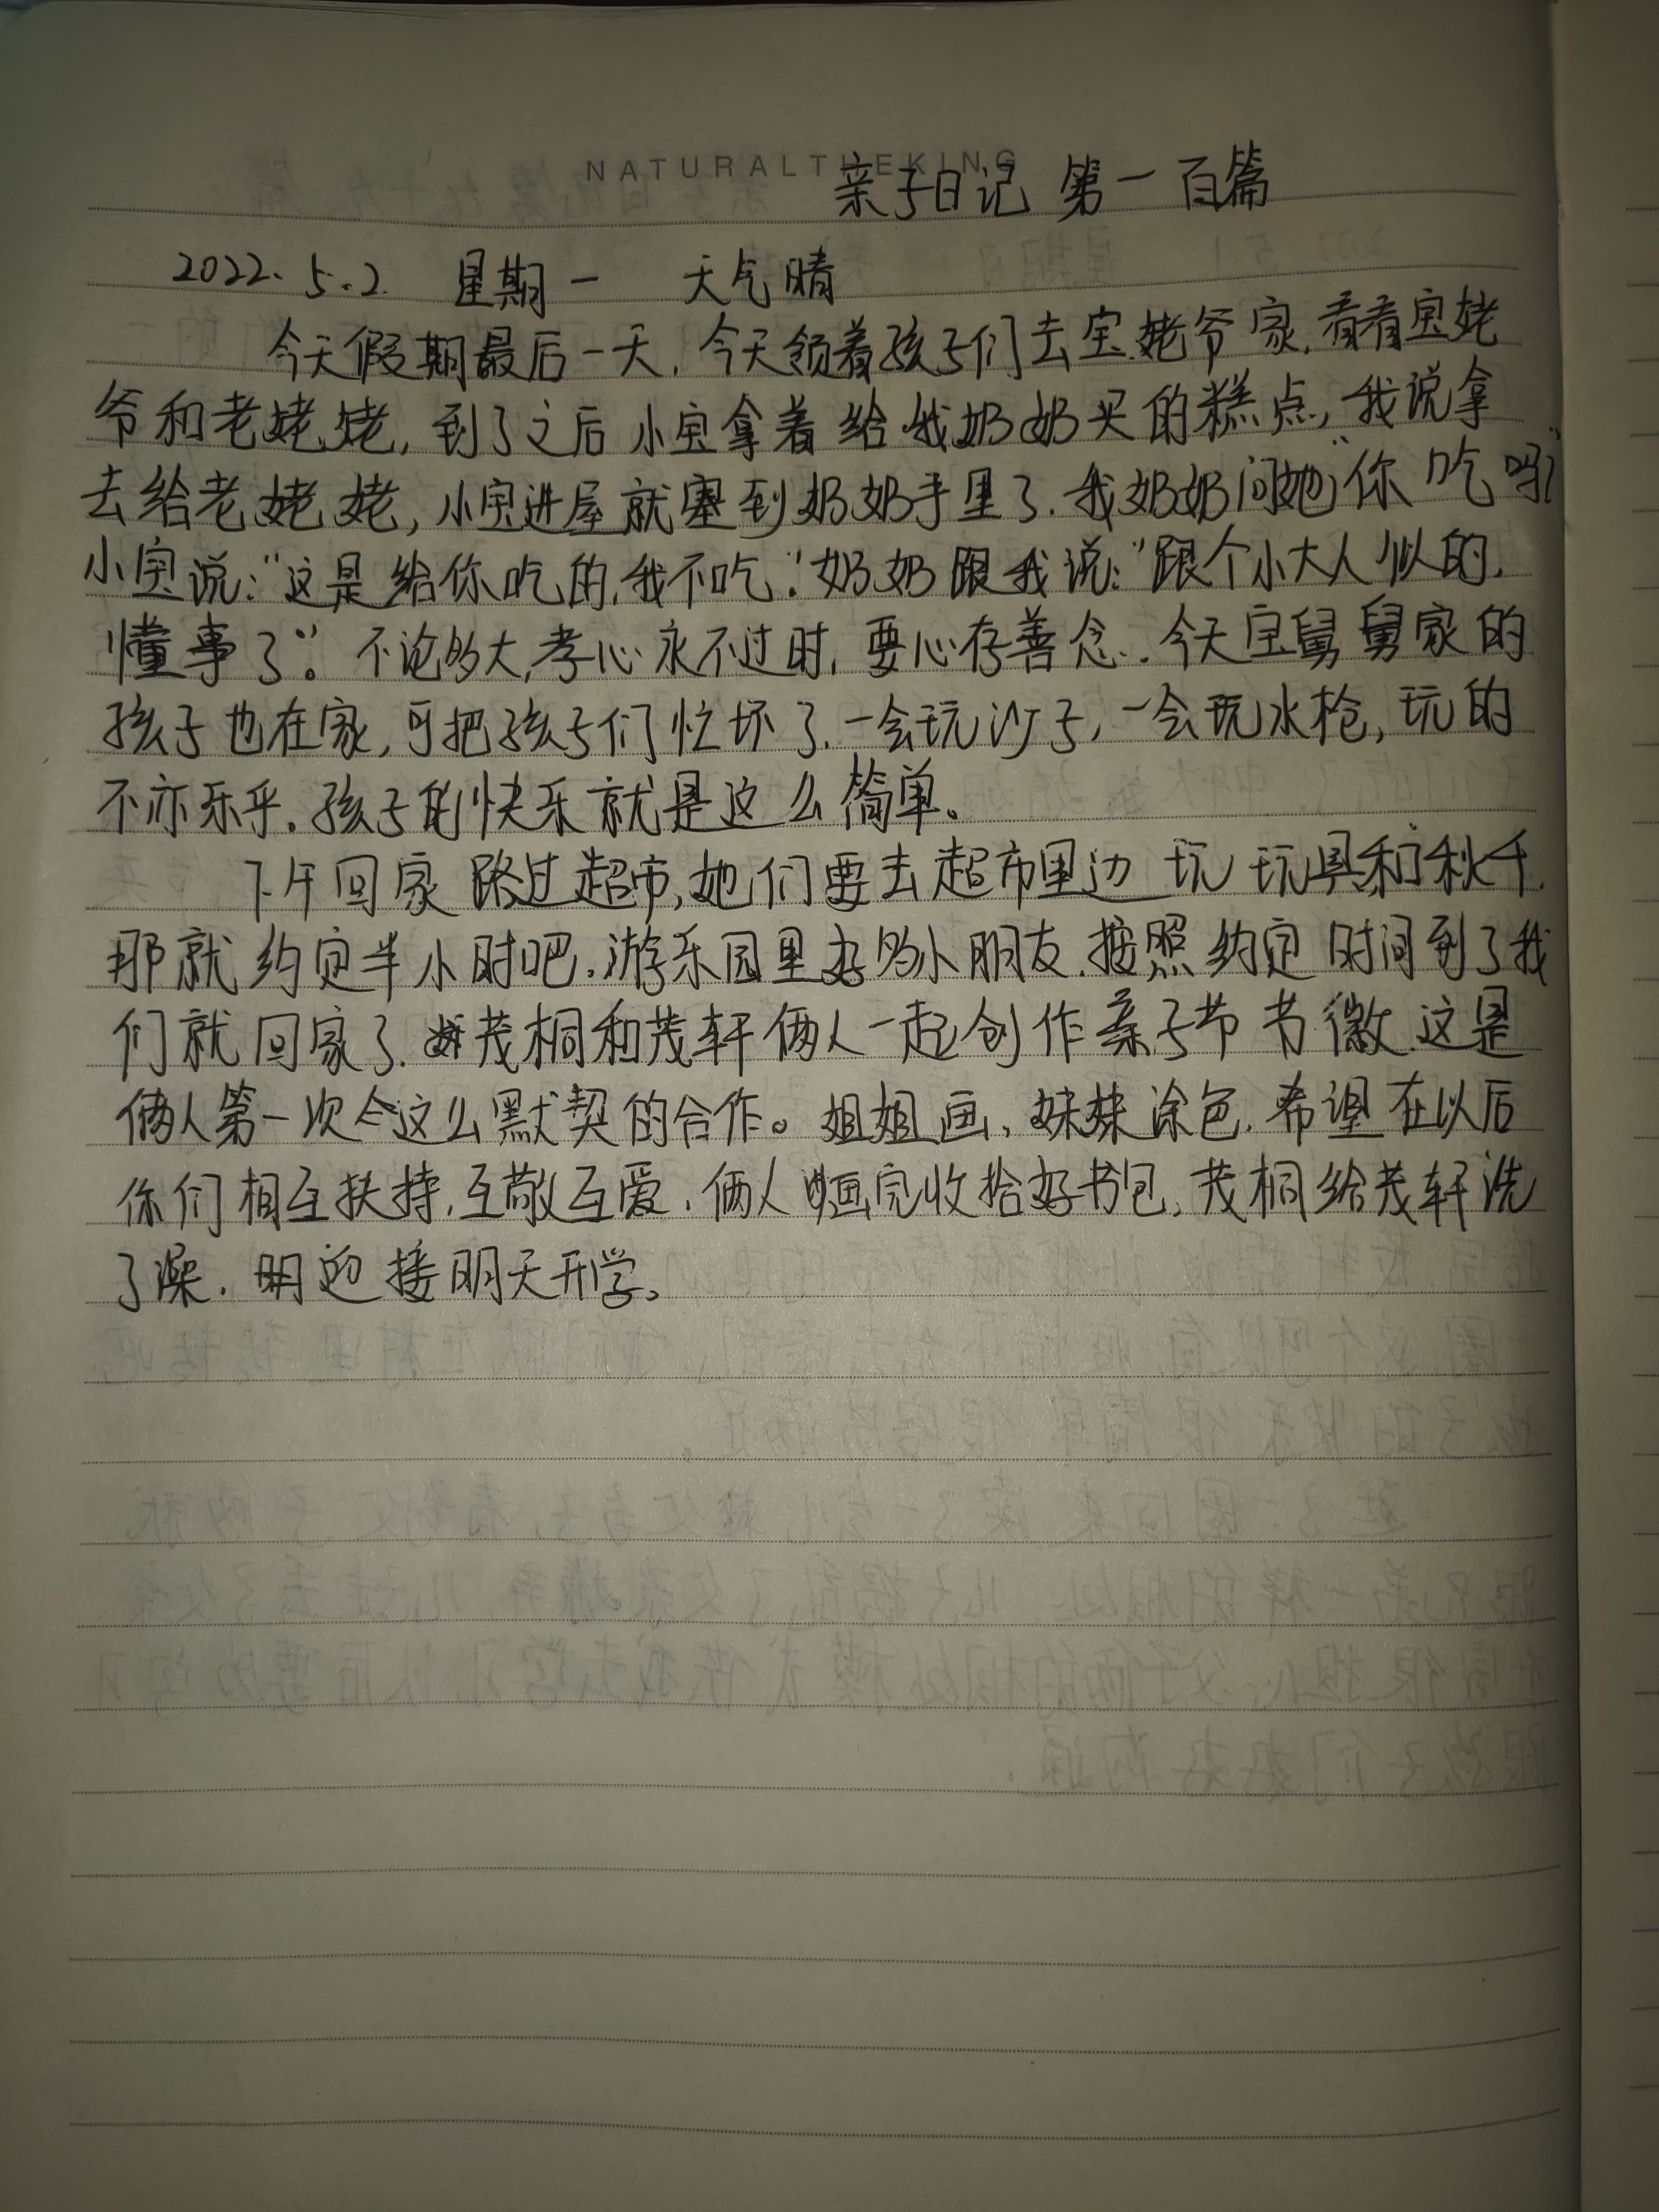 NATURALTHEKING
亲子日记 第一百篇
2022.5.2. 星期一 天气晴
今天假期最后一天,今天领着孩子们去宝姥爷家,看看宝姥
爷和老姥姥,到了之后小宝拿着给我奶奶买的糕点,我说拿
去给老姥姥,小宝进屋就塞到奶奶手里了.我奶奶问她"你吃吗?"
小宝说:"这是给你吃的,我不吃."奶奶跟我说:"跟个小大人似的,
懂事了"。不论多大,孝心永不过时,要心存善念.今天宝舅舅家的
孩子也在家,可把孩子们忙坏了.一会玩沙子,一会玩水枪,玩的
不亦乐乎.孩子的快乐就是这么简单。
下午回家路过超市,她们要去超市里边玩玩具和秋千,
那就约定半小时吧.游乐园里好多小朋友.按照约定时间到了我
们就回家了.茂桐和茂轩俩人一起创作亲子节节徽.这是
俩人第一次这么默契的合作。姐姐画,妹妹涂色.希望在以后
你们相互扶持,互敬互爱.俩人画完收拾好书包,茂桐给茂轩洗
了澡.迎接明天开学。